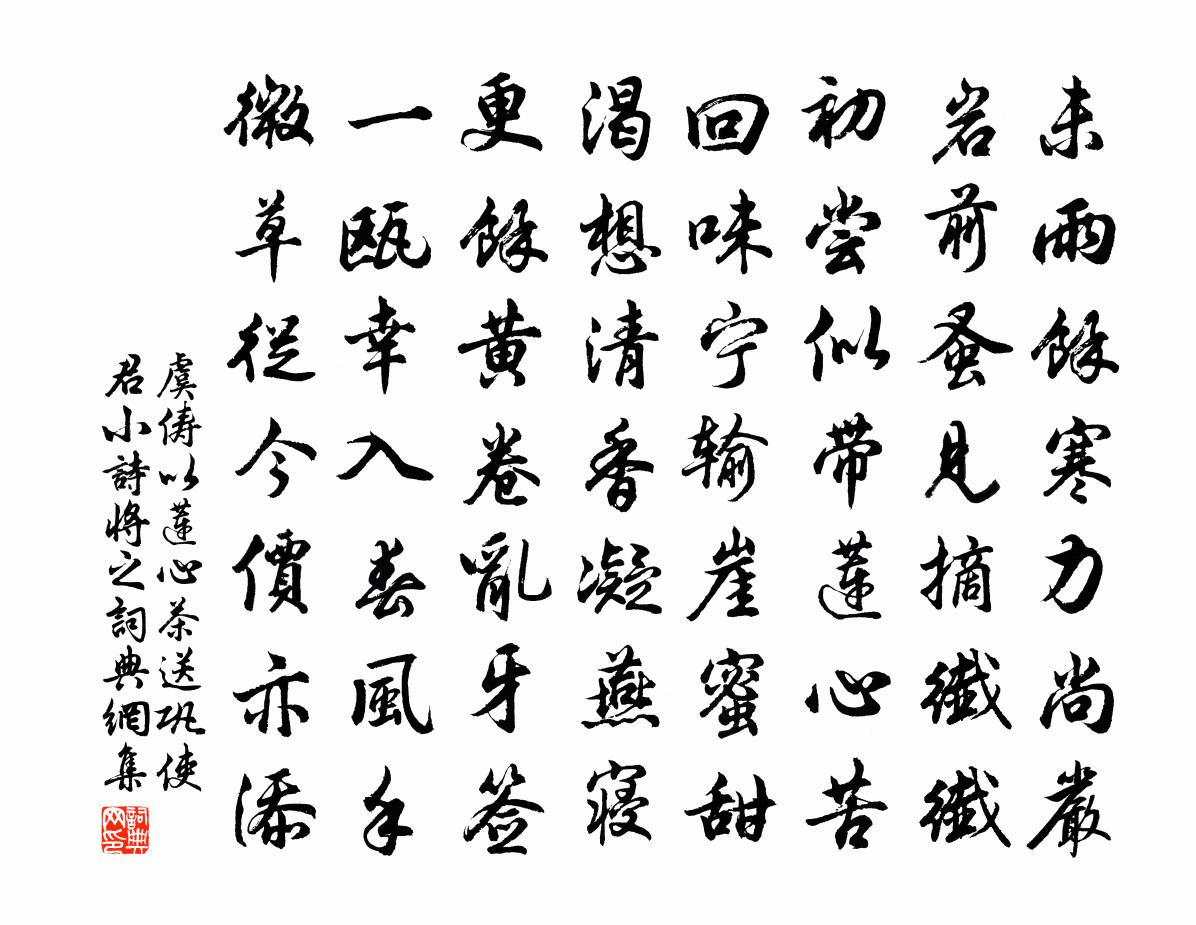 未雨餘寒力尚嚴
岩前蚤見摘纖纖
初尝似带蓮心苦
回味宁输崖蜜甜
渴想清香凝燕寝
更餘黄卷亂牙签
一瓯幸入春風手
微草從今價亦添
虞俦以蓮心茶送巩使
君小詩将之詞典網集
詞典
网印